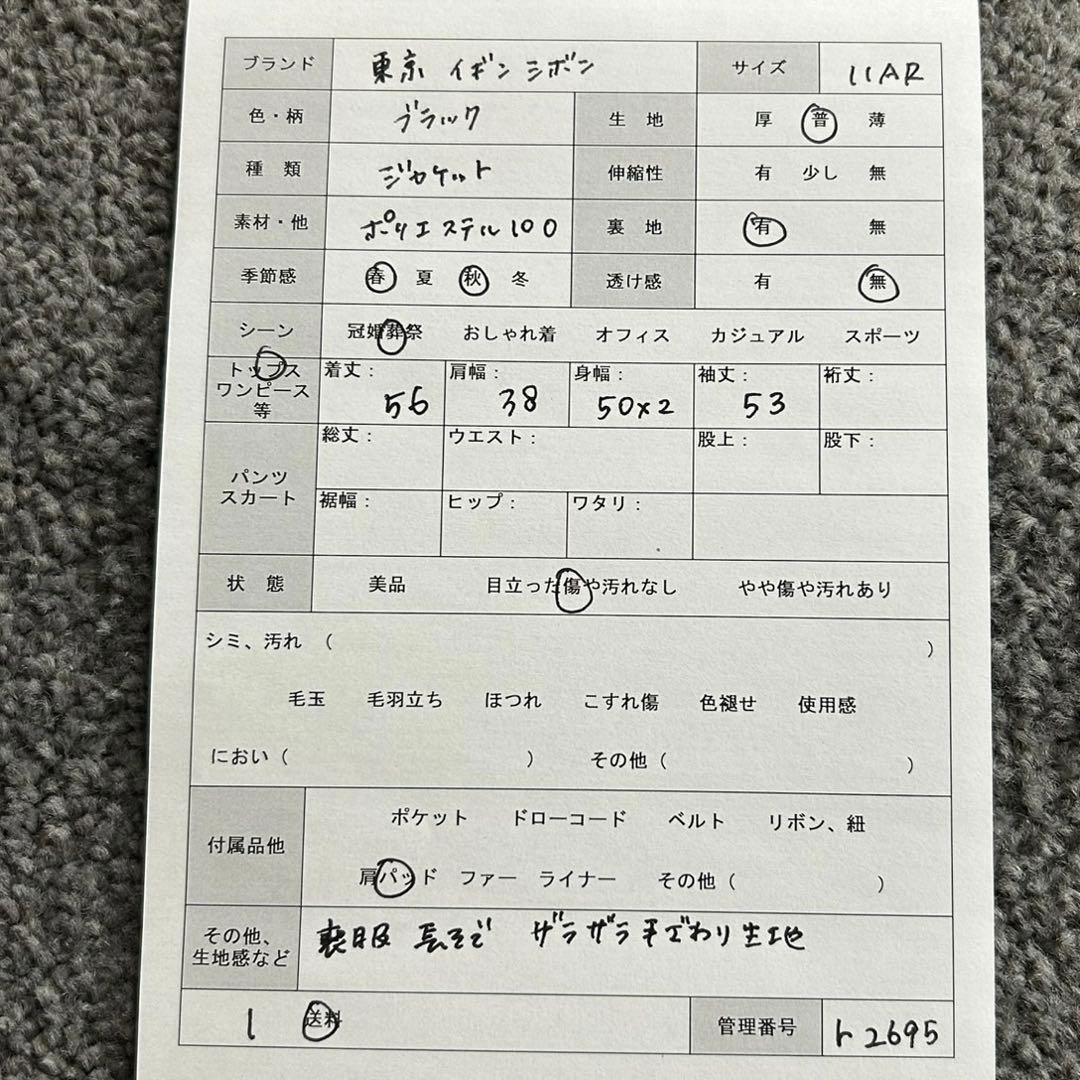 ブランド 東京 イギン シボン サイズ 11AR
色・柄 ブラック 生 地 厚 普 薄
種 類 ジャケット 伸縮性 有 少し 無
素材・他 ポリエステル100 裏 地 有 無
季節感 春 夏 秋 冬 透け感 有 無
シーン 冠婚葬祭 おしゃれ着 オフィス カジュアル スポーツ
トップス
ワンピース
等
着丈： 肩幅： 身幅： 袖丈： 裄丈：
56 38 50×2 53
パンツ
スカート
総丈： ウエスト： 股上： 股下：
裾幅： ヒップ： ワタリ：
状 態 美品 目立った傷や汚れなし やや傷や汚れあり
シミ、汚れ （ ）
毛玉 毛羽立ち ほつれ こすれ傷 色褪せ 使用感
におい（ ） その他（ ）
付属品他
ポケット ドローコード ベルト リボン、紐
肩パッド ファー ライナー その他（ ）
その他、
生地感など
喪服 長そで ザラザラ手ざわり生地
1 送料 管理番号 ト2695